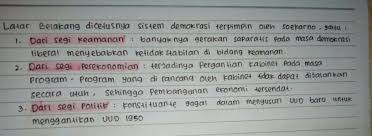 Latar Belakang dicetusnya sistem demokrasi terpimpin oleh soekarno, yaitu :
1. Dari segi keamanan : banyaknya gerakan saparatis pada masa demokrasi
liberal menyebabkan ketidak stabilan di bidang keamanan.
2. Dari segi perekonomian : terjadinya Pergantian kabinet pada masa
Program - Program yang di rancang oleh kabinet tidak dapat dijalankan
secara utuh , sehingga Pembangunan ekonomi tersendat.
3. Dari segi Politik : konstituante gagal dalam menyusun UUD baru untuk
menggantikan UUD 1950